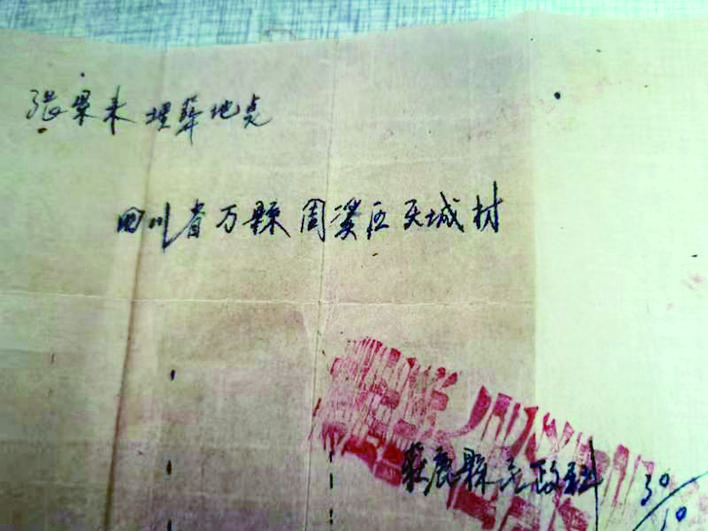 张果来 埋葬地点
四川省万縣周溪区天城村
縣民政社
30/10